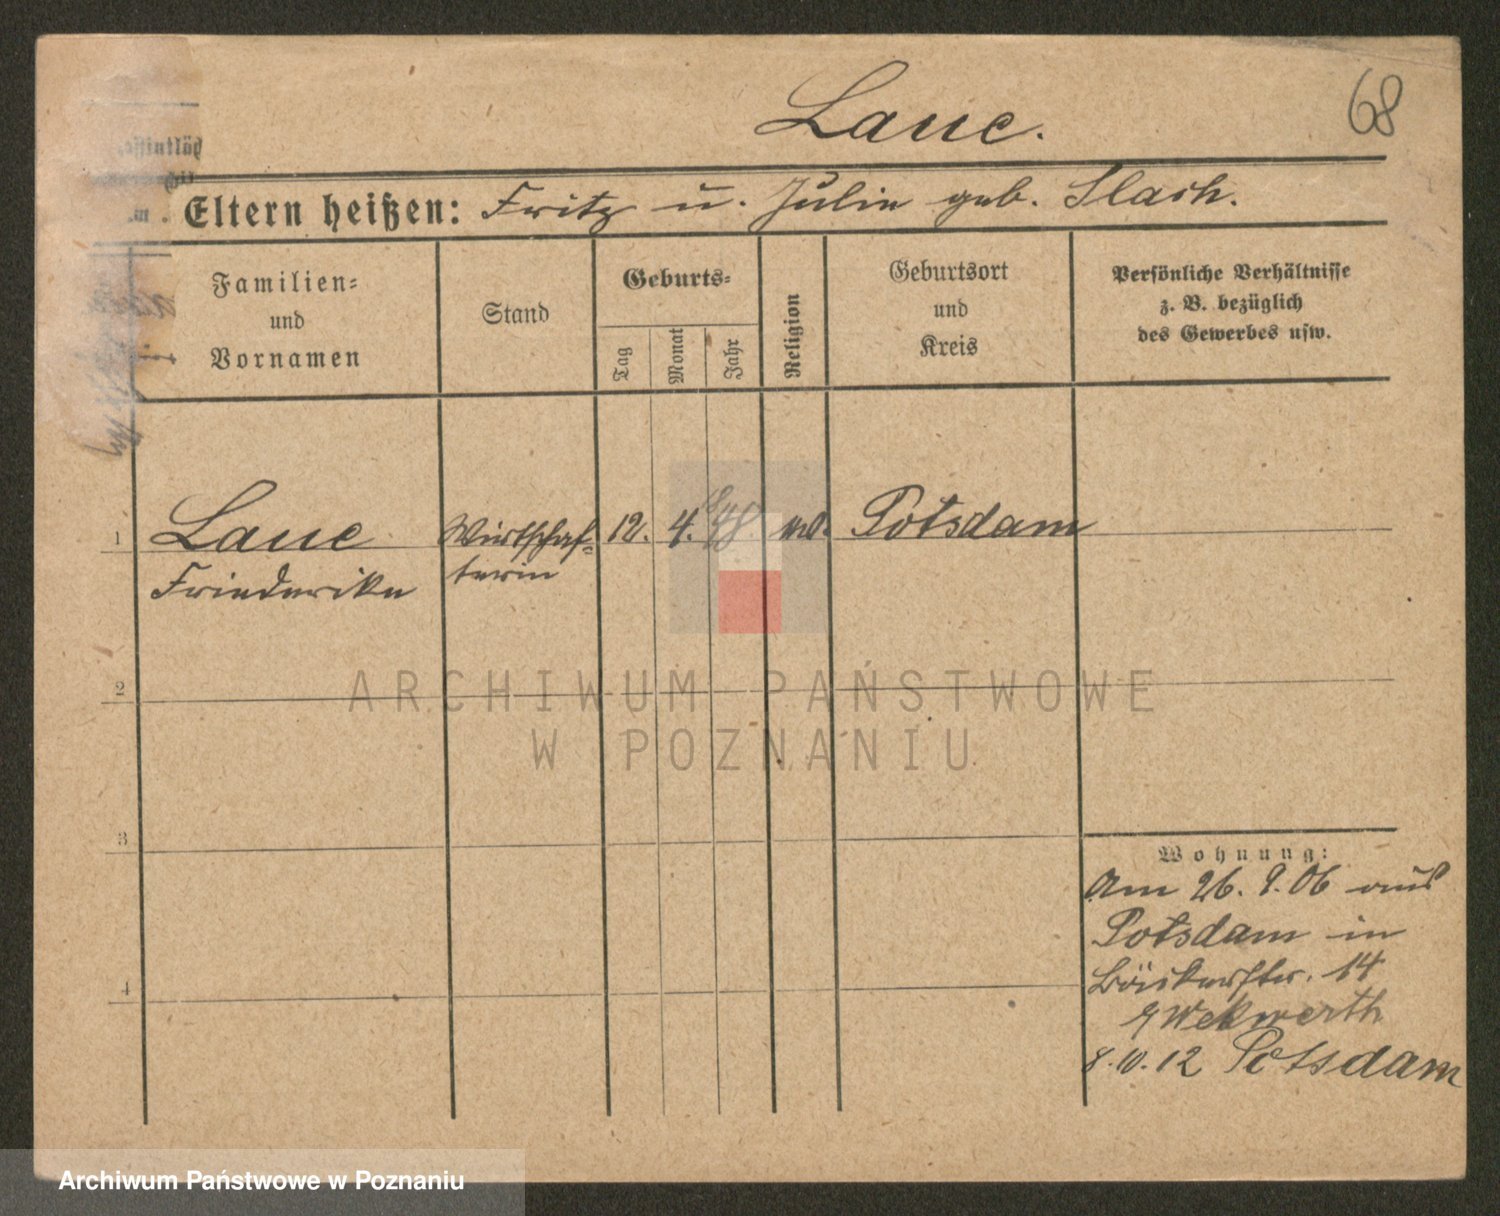 Laue.
68
Eltern heißen: Fritz u. Julie geb. Slach.
Familien-
und
Vornamen
Stand
Geburts-
Tag
Monat
Jahr
Religion
Geburtsort
und
Kreis
Persönliche Verhältnisse
z. B. bezüglich
des Gewerbes usw.
1
Laue
Friederike
Wirtschaf-
terin
12. 4. 48. Potsdam
2
ARCHIWUM PAŃSTWOWE
W POZNANIU
3
Wohnung:
Am 26. 9. 06 aus
Potsdam in
14
Wekwerth
8.10.12 Potsdam
4
Archiwum Państwowe w Poznaniu